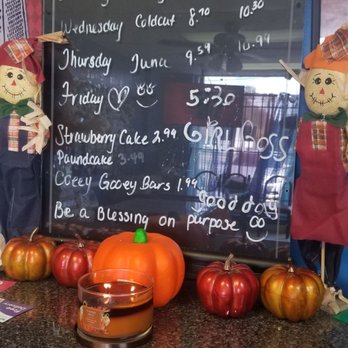 Wednesday Coldcut 8.70 10.30
Thursday Tuna 9.59 10.94
Friday 5:30
Strawberry Cake 2.99
Poundcake 3.49
Gooey Bars 1.99
good day
Be a Blessing on purpose